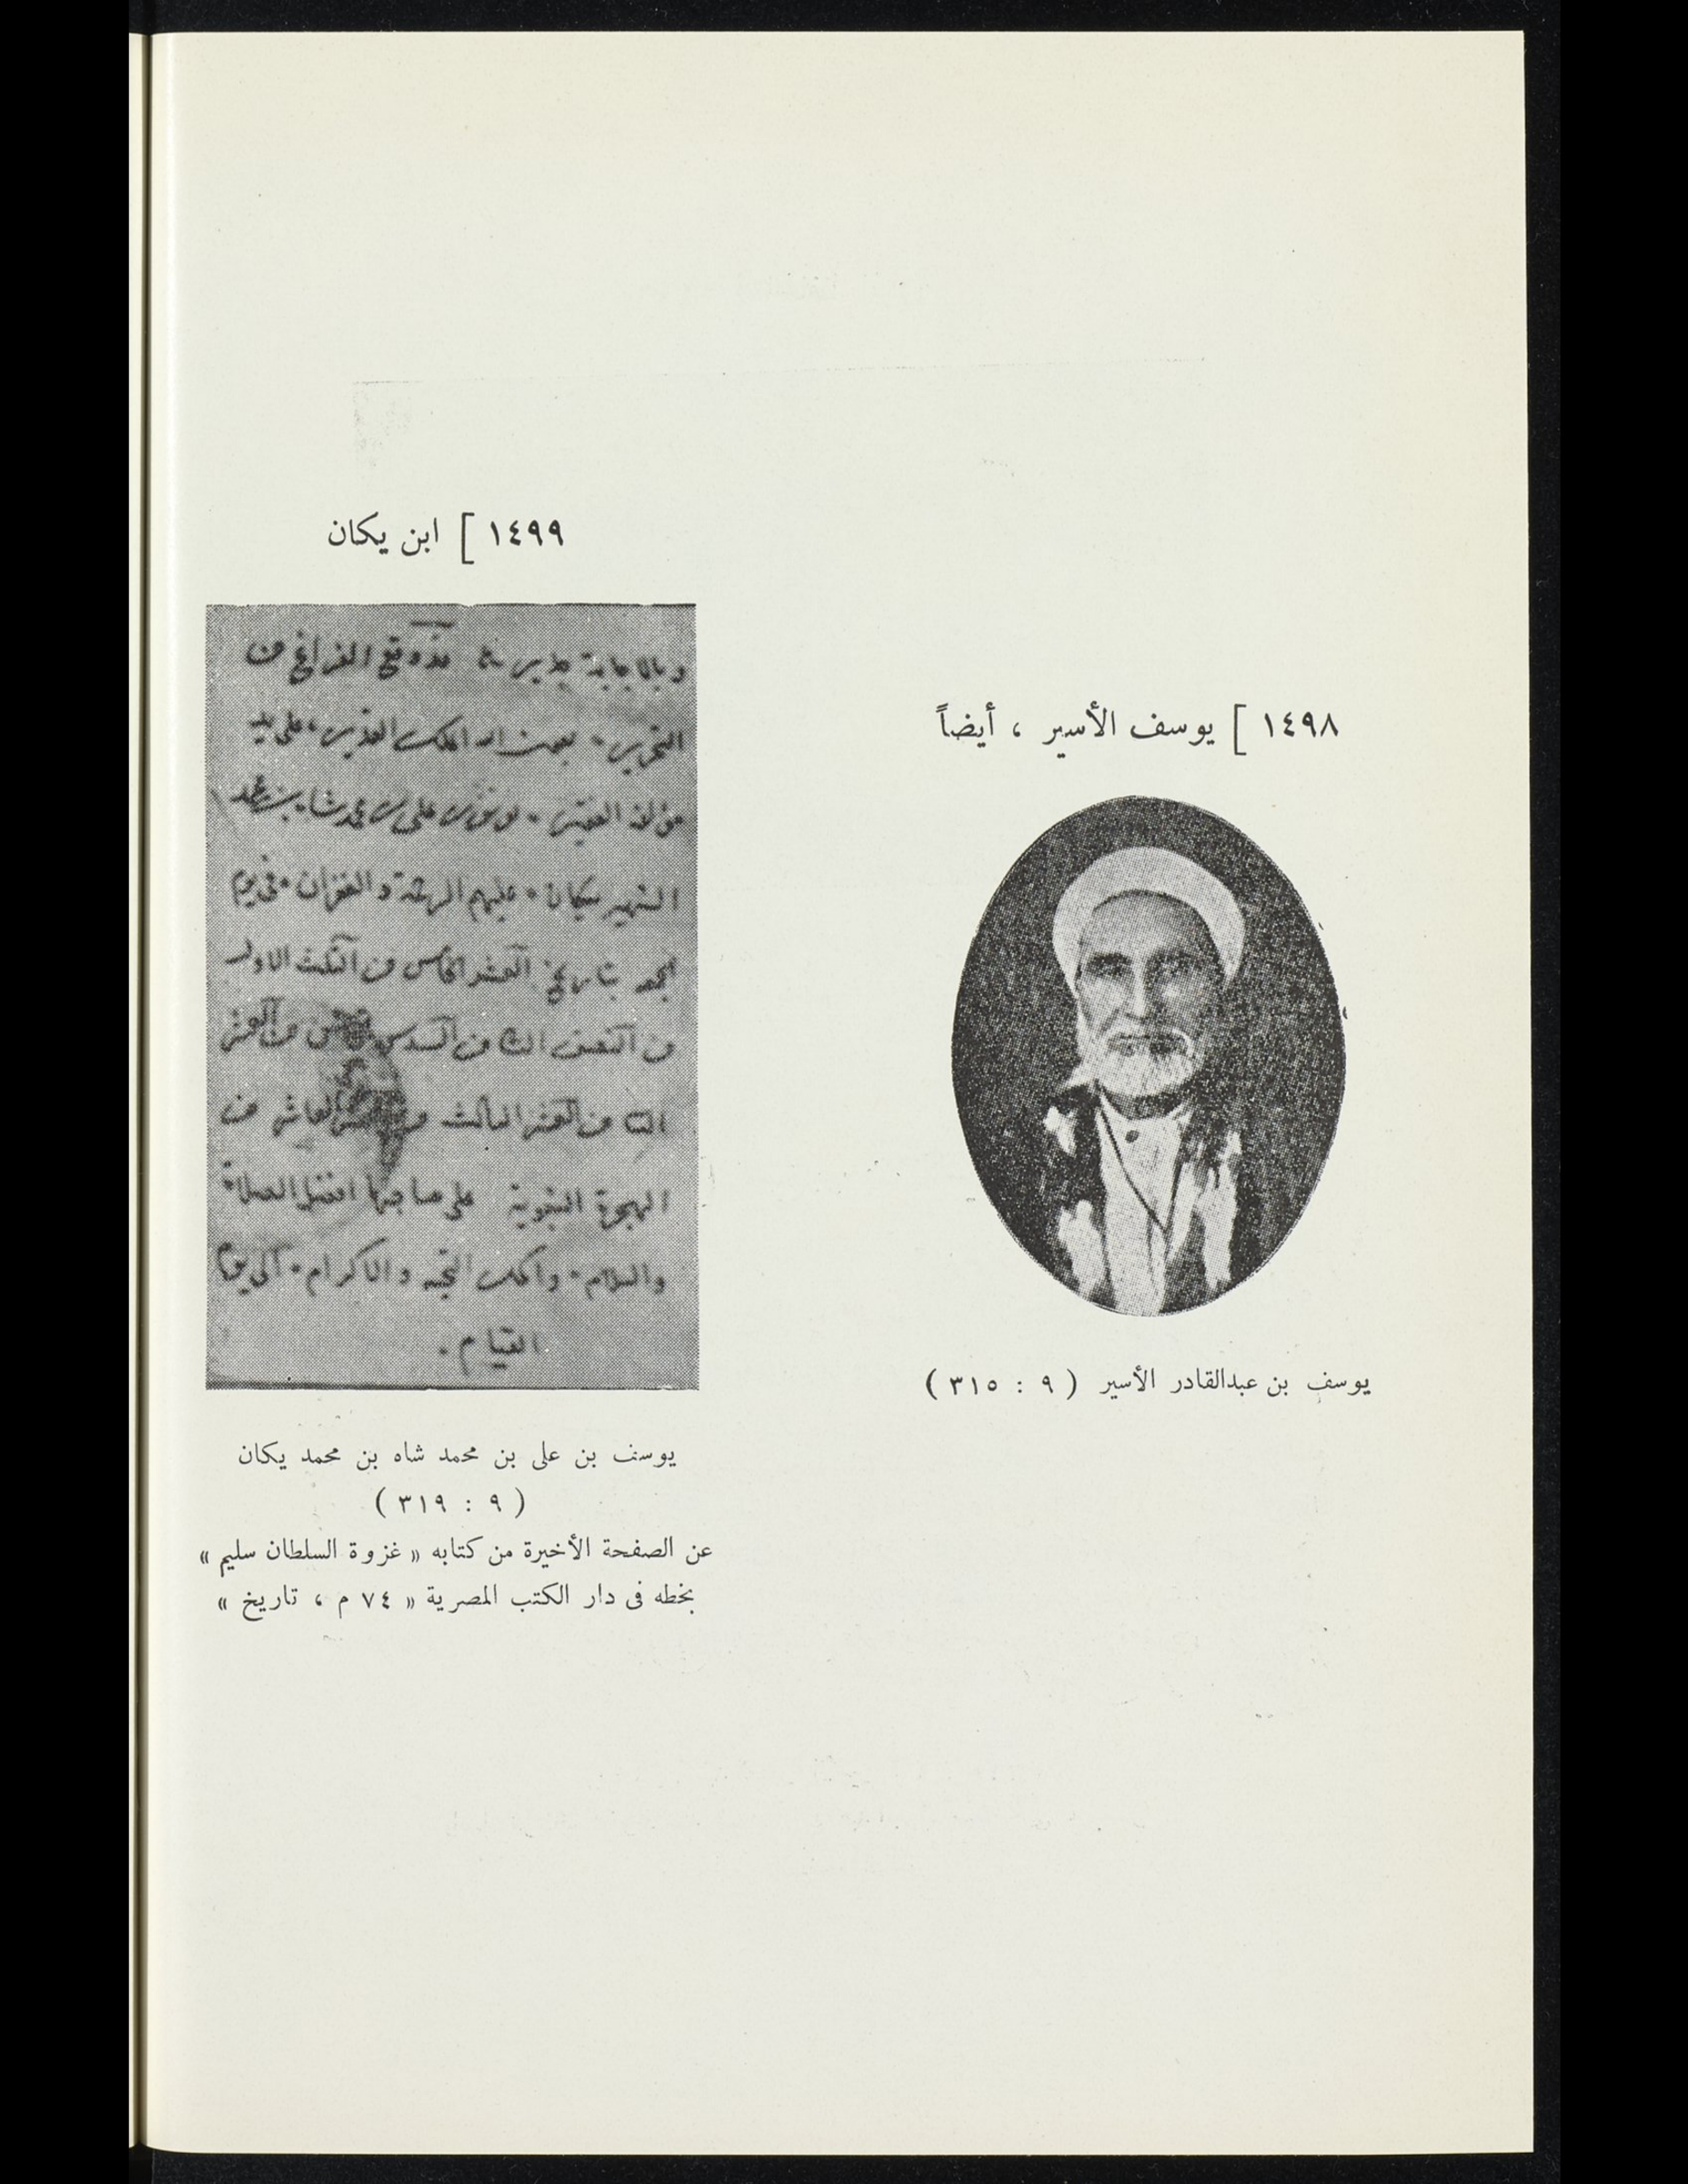 ١٤٩٨ [ يوسف الأسير ، أيضاً
يوسف بن عبدالقادر الأسير ( ٩ : ٣١٥ )
١٤٩٩ [ ابن يكان
وبالاجابة جدير قد وقع الفراغ من
التحرير • بعون الله الملك القدير • على يد
مؤلفه الفقير • يوسف بن على بن محمد شاه بن محمد
الشهير بيكان • عليهم الرحمة والغفران • فى يوم
بتاريخ العشر الخامس من الثلث الاول
من النصف الثانى من السدس من العشر
من العشر الثالث العاشر من
الهجرة النبوية على صاحبها افضل الصلاة
والسلام • واكمل التحية والاكرام • الى يوم
القيام .
يوسف بن على بن محمد شاه بن محمد يكان
( ٩ : ٣١٩ )
عن الصفحة الأخيرة من كتابه « غزوة السلطان سليم »
بخطه فى دار الكتب المصرية « ٧٤ م ، تاريخ »